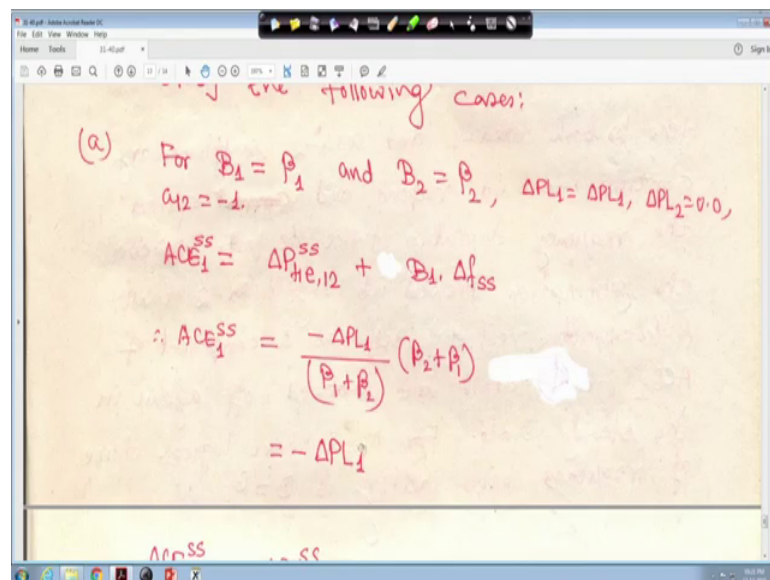 31-40.pdf - Adobe Acrobat Reader DC
File Edit View Window Help
Home Tools 31-40.pdf × Sign I
13 / 14
the following cases:
(a) For B₁ = β₁ and B₂ = β₂, ΔPL₁ = ΔPL₁, ΔPL₂ = 0.0,
a₁₂ = -1.
ACE₁^SS = ΔP^SS_tie,12 + B₁. Δf_SS
∴ ACE₁^SS = -ΔPL₁/(β₁+β₂) (β₂+β₁)
= - ΔPL₁